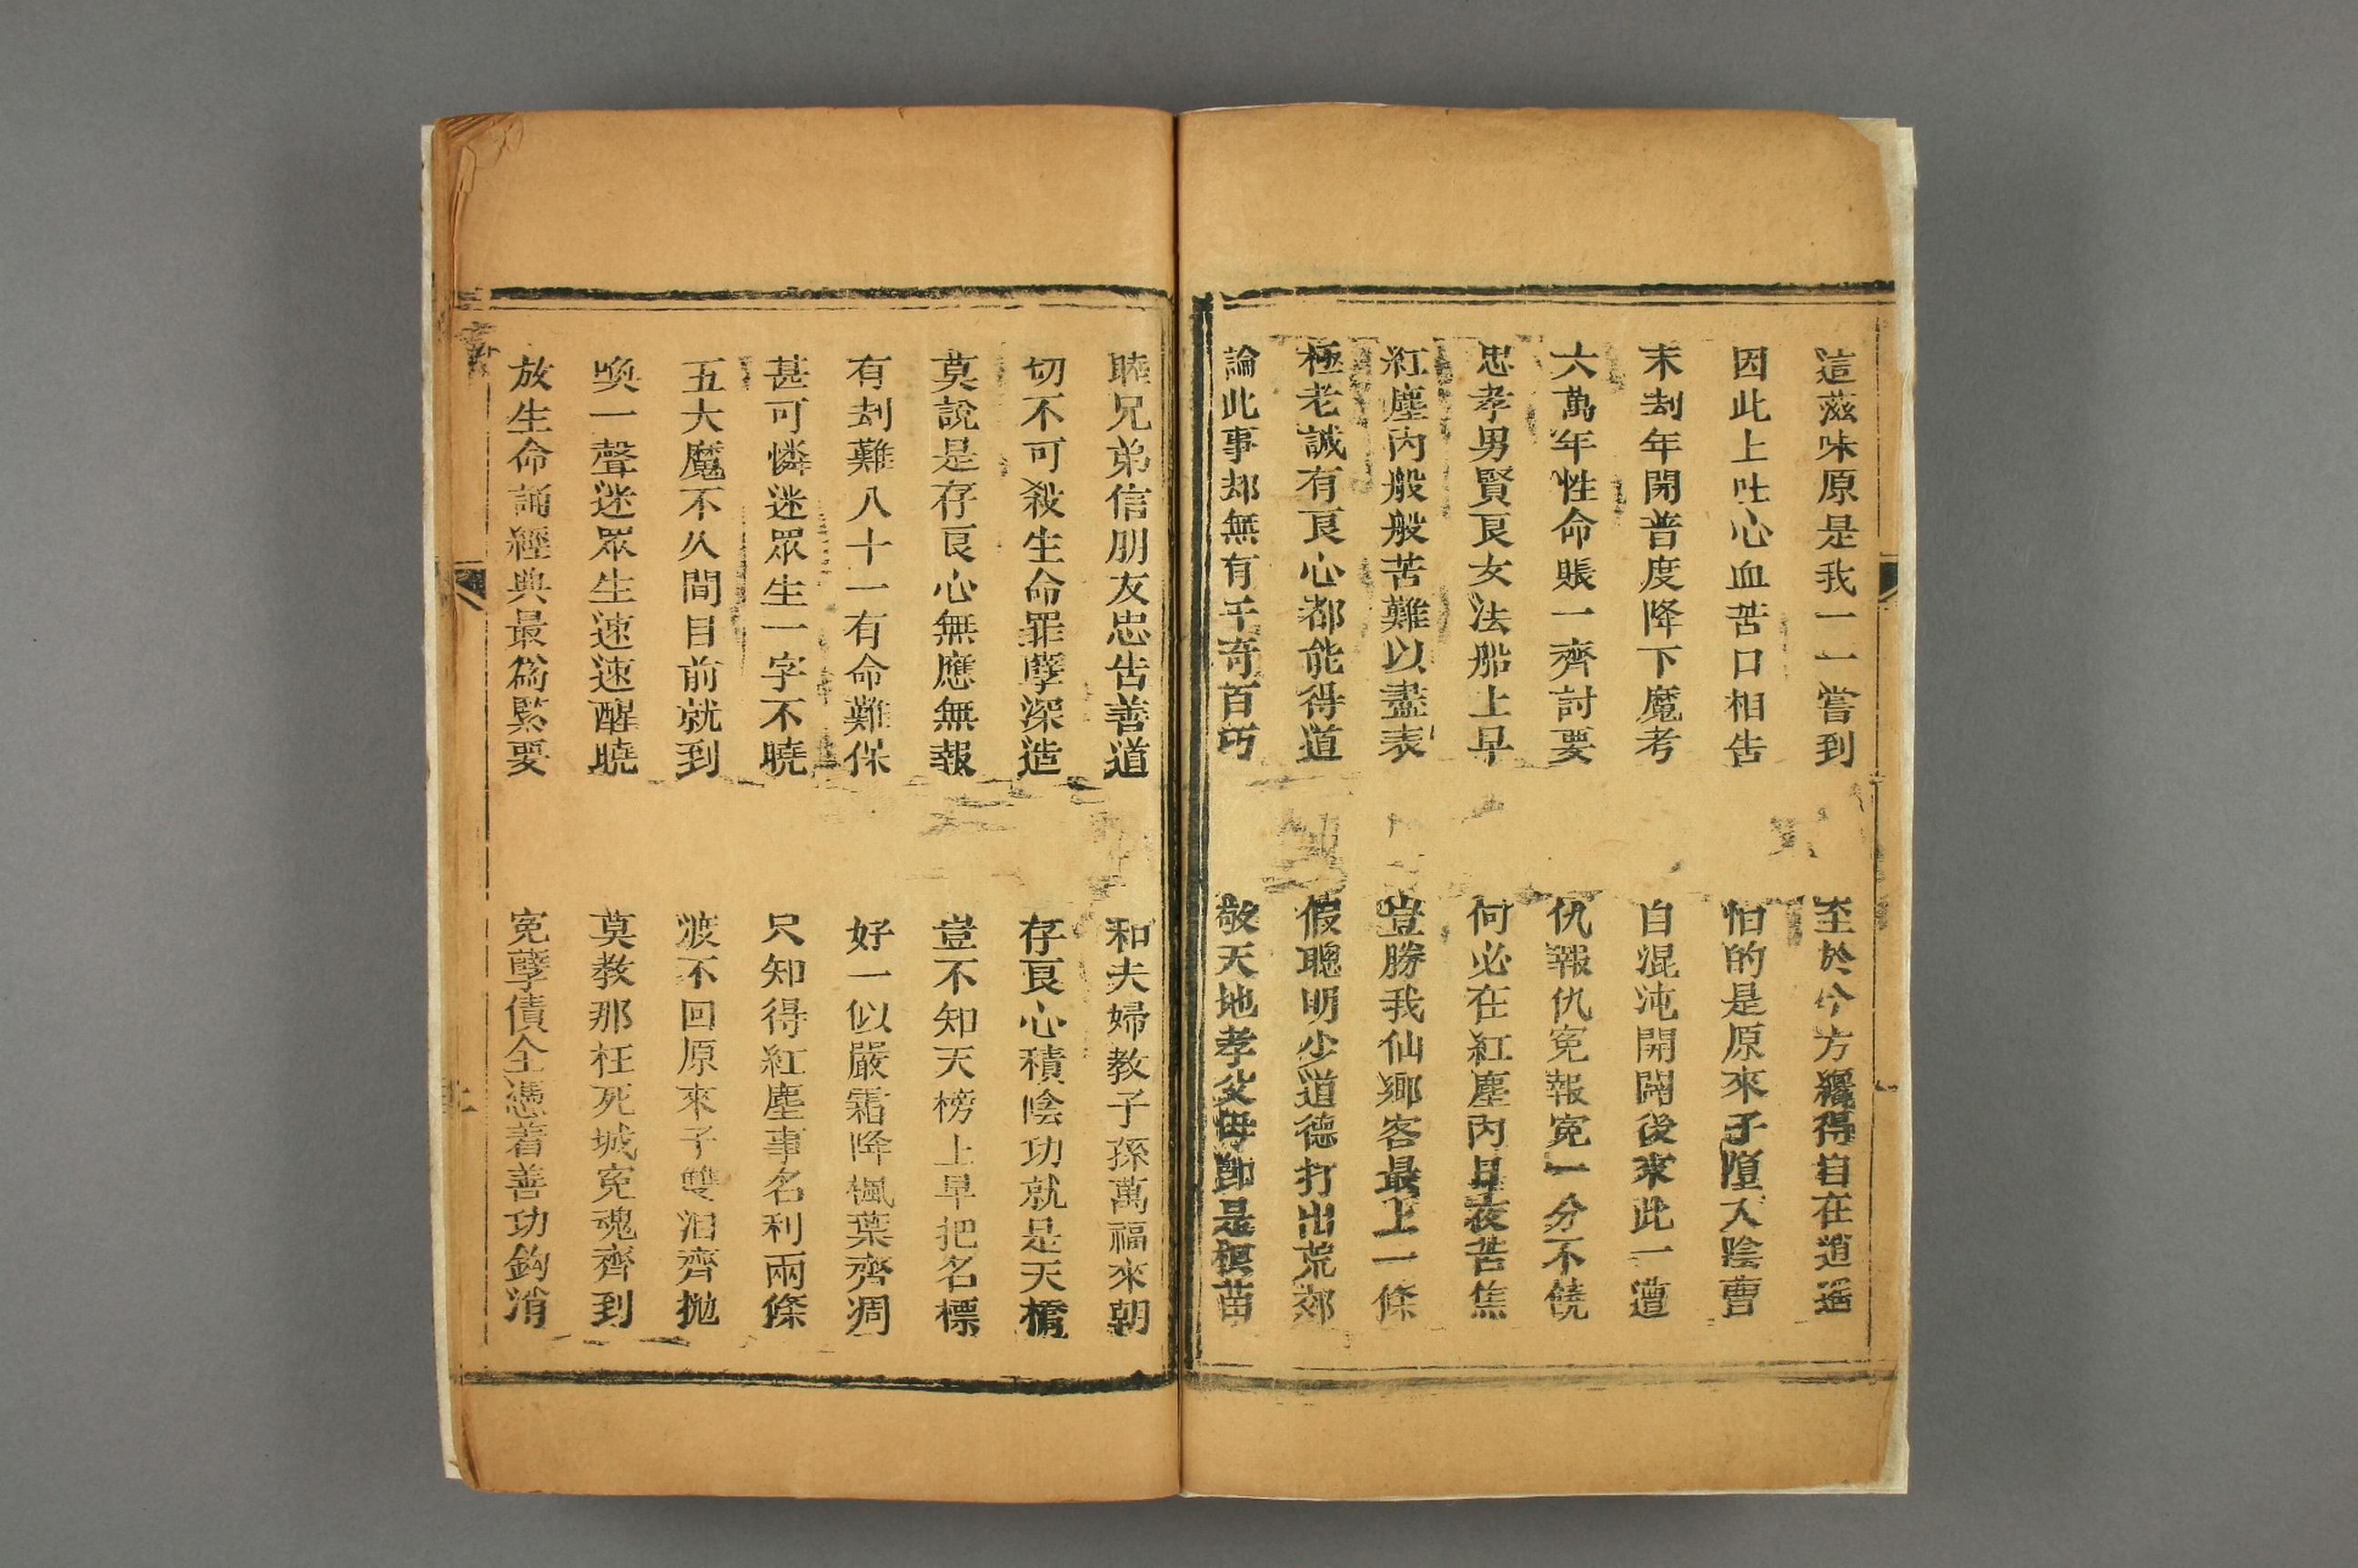 這滋味原是我一一嘗到　至於今方纔得自在逍遥
因此上吐心血苦口相告　怕的是原來子墮入陰曹
末刼年開普度降下魔考　自混沌開闢後來此一遭
六萬年性命賬一齊討要　仇報仇寃報寃一分不饒
忠孝男賢良女法船上早　何必在紅塵內日夜苦焦
紅塵內般般苦難以盡表　豈勝我仙鄉客最上一條
極老誠有良心都能得道　假聰明少道德打出荒郊
論此事却無有千奇百巧　敬天地孝父母卽是根苗
睦兄弟信朋友忠告善道　和夫婦教子孫萬福來朝
切不可殺生命罪孽深造　存良心積陰功就是天橋
莫說是存良心無應無報　豈不知天榜上早把名標
有刼難八十一有命難保　好一似嚴霜降楓葉齊凋
甚可憐迷眾生一字不曉　只知得紅塵事名利兩條
五大魔不久間目前就到　渡不回原來子雙泪齊抛
喚一聲迷眾生速速醒曉　莫教那枉死城寃魂齊到
放生命誦經典最爲緊要　寃孽債全憑着善功鈎消